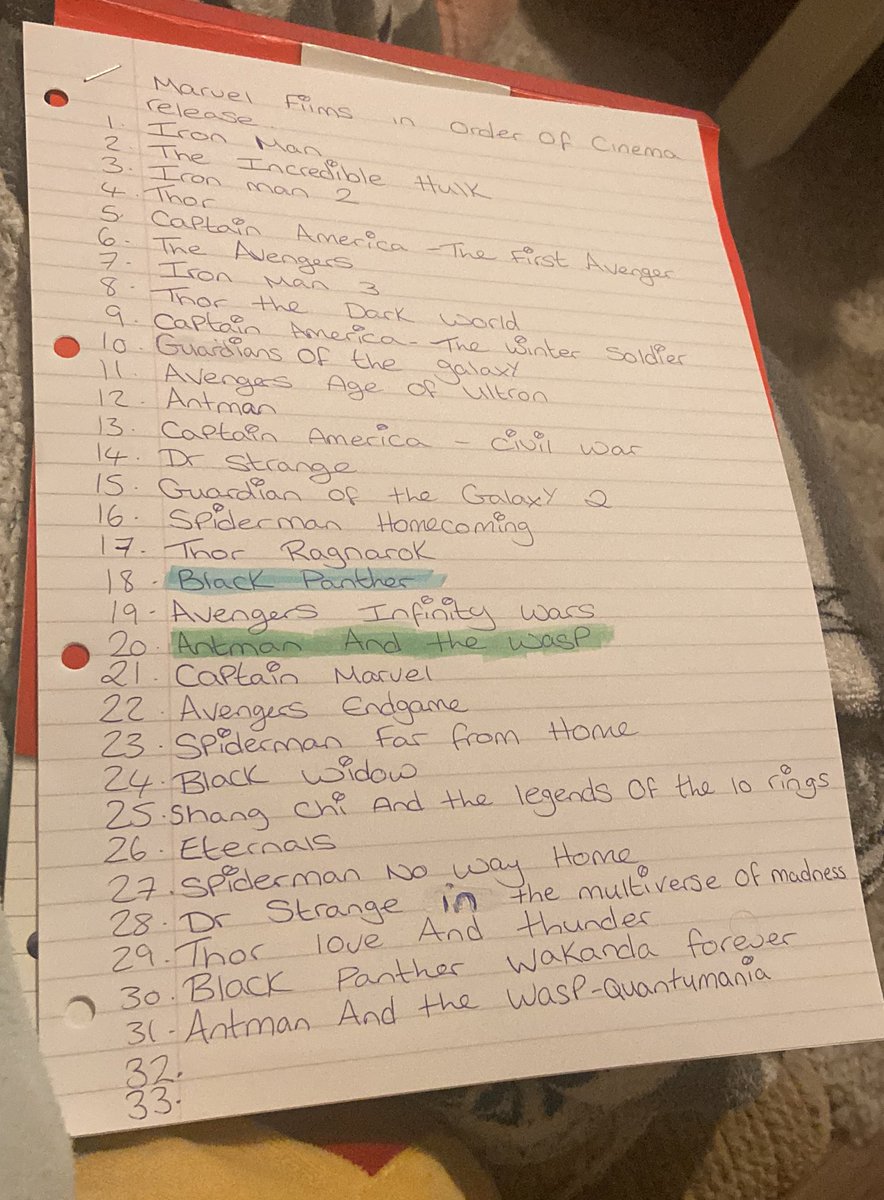 Marvel Films in Order Of Cinema
release
1. Iron Man
2. The Incredible Hulk
3. Iron man 2
4. Thor
5. Captain America - The First Avenger
6. The Avengers
7. Iron Man 3
8. Thor the Dark World
9. Captain America - The Winter Soldier
10. Guardians Of the galaxy
11. Avengers Age of Ultron
12. Antman
13. Captain America - Civil War
14. Dr Strange
15. Guardian of the Galaxy 2
16. Spiderman Homecoming
17. Thor Ragnarok
18. Black Panther
19. Avengers Infinity Wars
20. Antman And the Wasp
21. Captain Marvel
22. Avengers Endgame
23. Spiderman Far from Home
24. Black Widow
25. Shang Chi And the legends Of the 10 rings
26. Eternals
27. Spiderman No Way Home
28. Dr Strange in the multiverse of madness
29. Thor love And thunder
30. Black Panther Wakanda forever
31. Antman And the Wasp-Quantumania
32.
33.